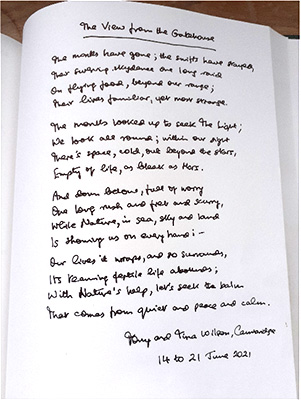 The View from the Gatehouse
The monks have gone; the swifts have stayed,
Their swerving skydance one long raid
On flying food, beyond our range;
Their lives familiar, yet most strange.
The monks looked up to seek The Light;
We look all round; within our sight
There's space, cold, out beyond the stars,
Empty of life, as bleak as Mars.
And down below, full of worry
One long rush and fret and scurry,
While Nature, in sea, sky and land
Is showing us on every hand:-
Our lives it wraps, and so surrounds,
Its teeming fertile life abounds;
With Nature's help, let's seek the balm
That comes from quiet and peace and calm.
and Tina Wilson, Cambridge
14 to 21 June 2021